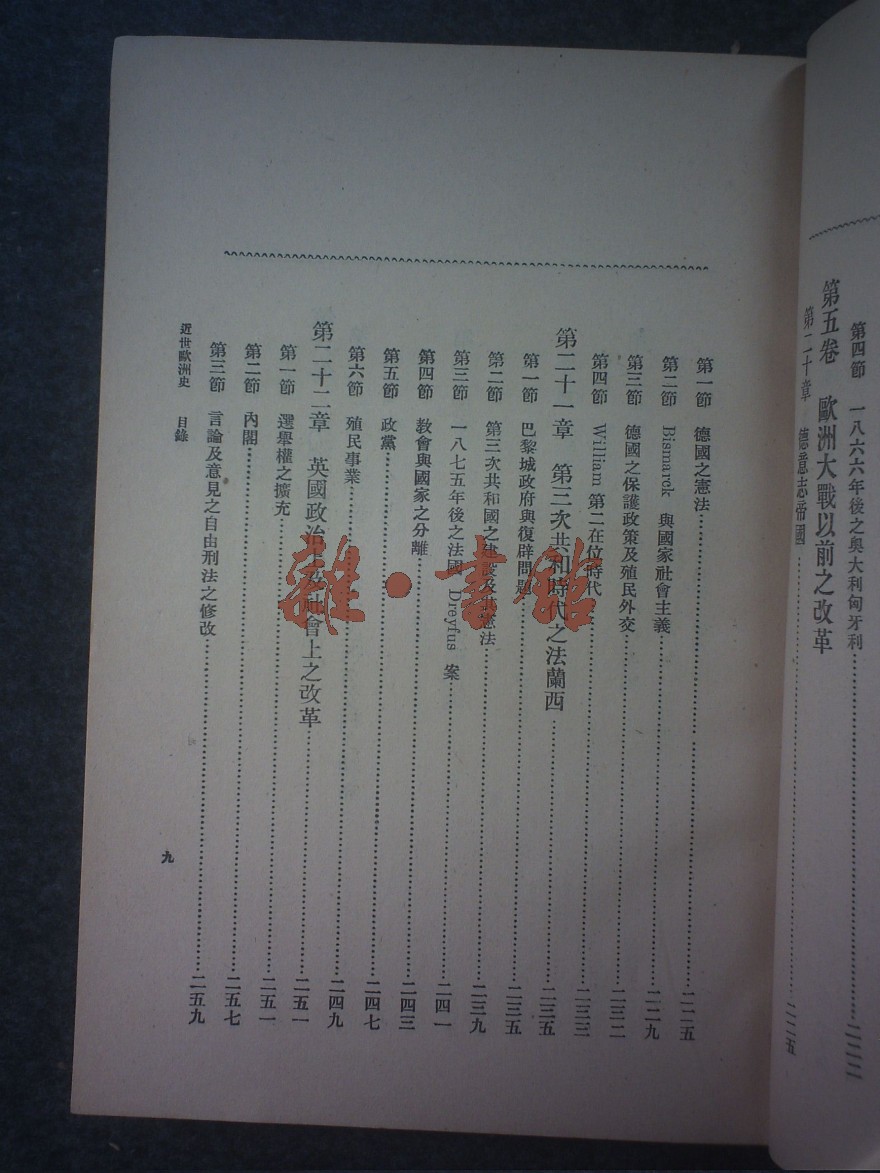 第四節 一八六六年後之奧大利匈牙利……二二二
第五卷 歐洲大戰以前之改革
第二十章 德意志帝國……二二五
第一節 德國之憲法……二二五
第二節 Bismarck 與國家社會主義……二二九
第三節 德國之保護政策及殖民外交……二三二
第四節 William 第二在位時代……二三三
第二十一章 第三次共和時代之法蘭西……二三五
第一節 巴黎城政府與復辟問題……二三五
第二節 第三次共和國之建設及其憲法……二三九
第三節 一八七五年後之法國 Dreyfus 案……二四一
第四節 教會與國家之分離……二四三
第五節 政黨……二四七
第六節 殖民事業……二四九
第二十二章 英國政治上及社會上之改革……二五一
第一節 選舉權之擴充……二五一
第二節 內閣……二五七
第三節 言論及意見之自由刑法之修改……二五九
近世歐洲史 目錄
九
雜·書館